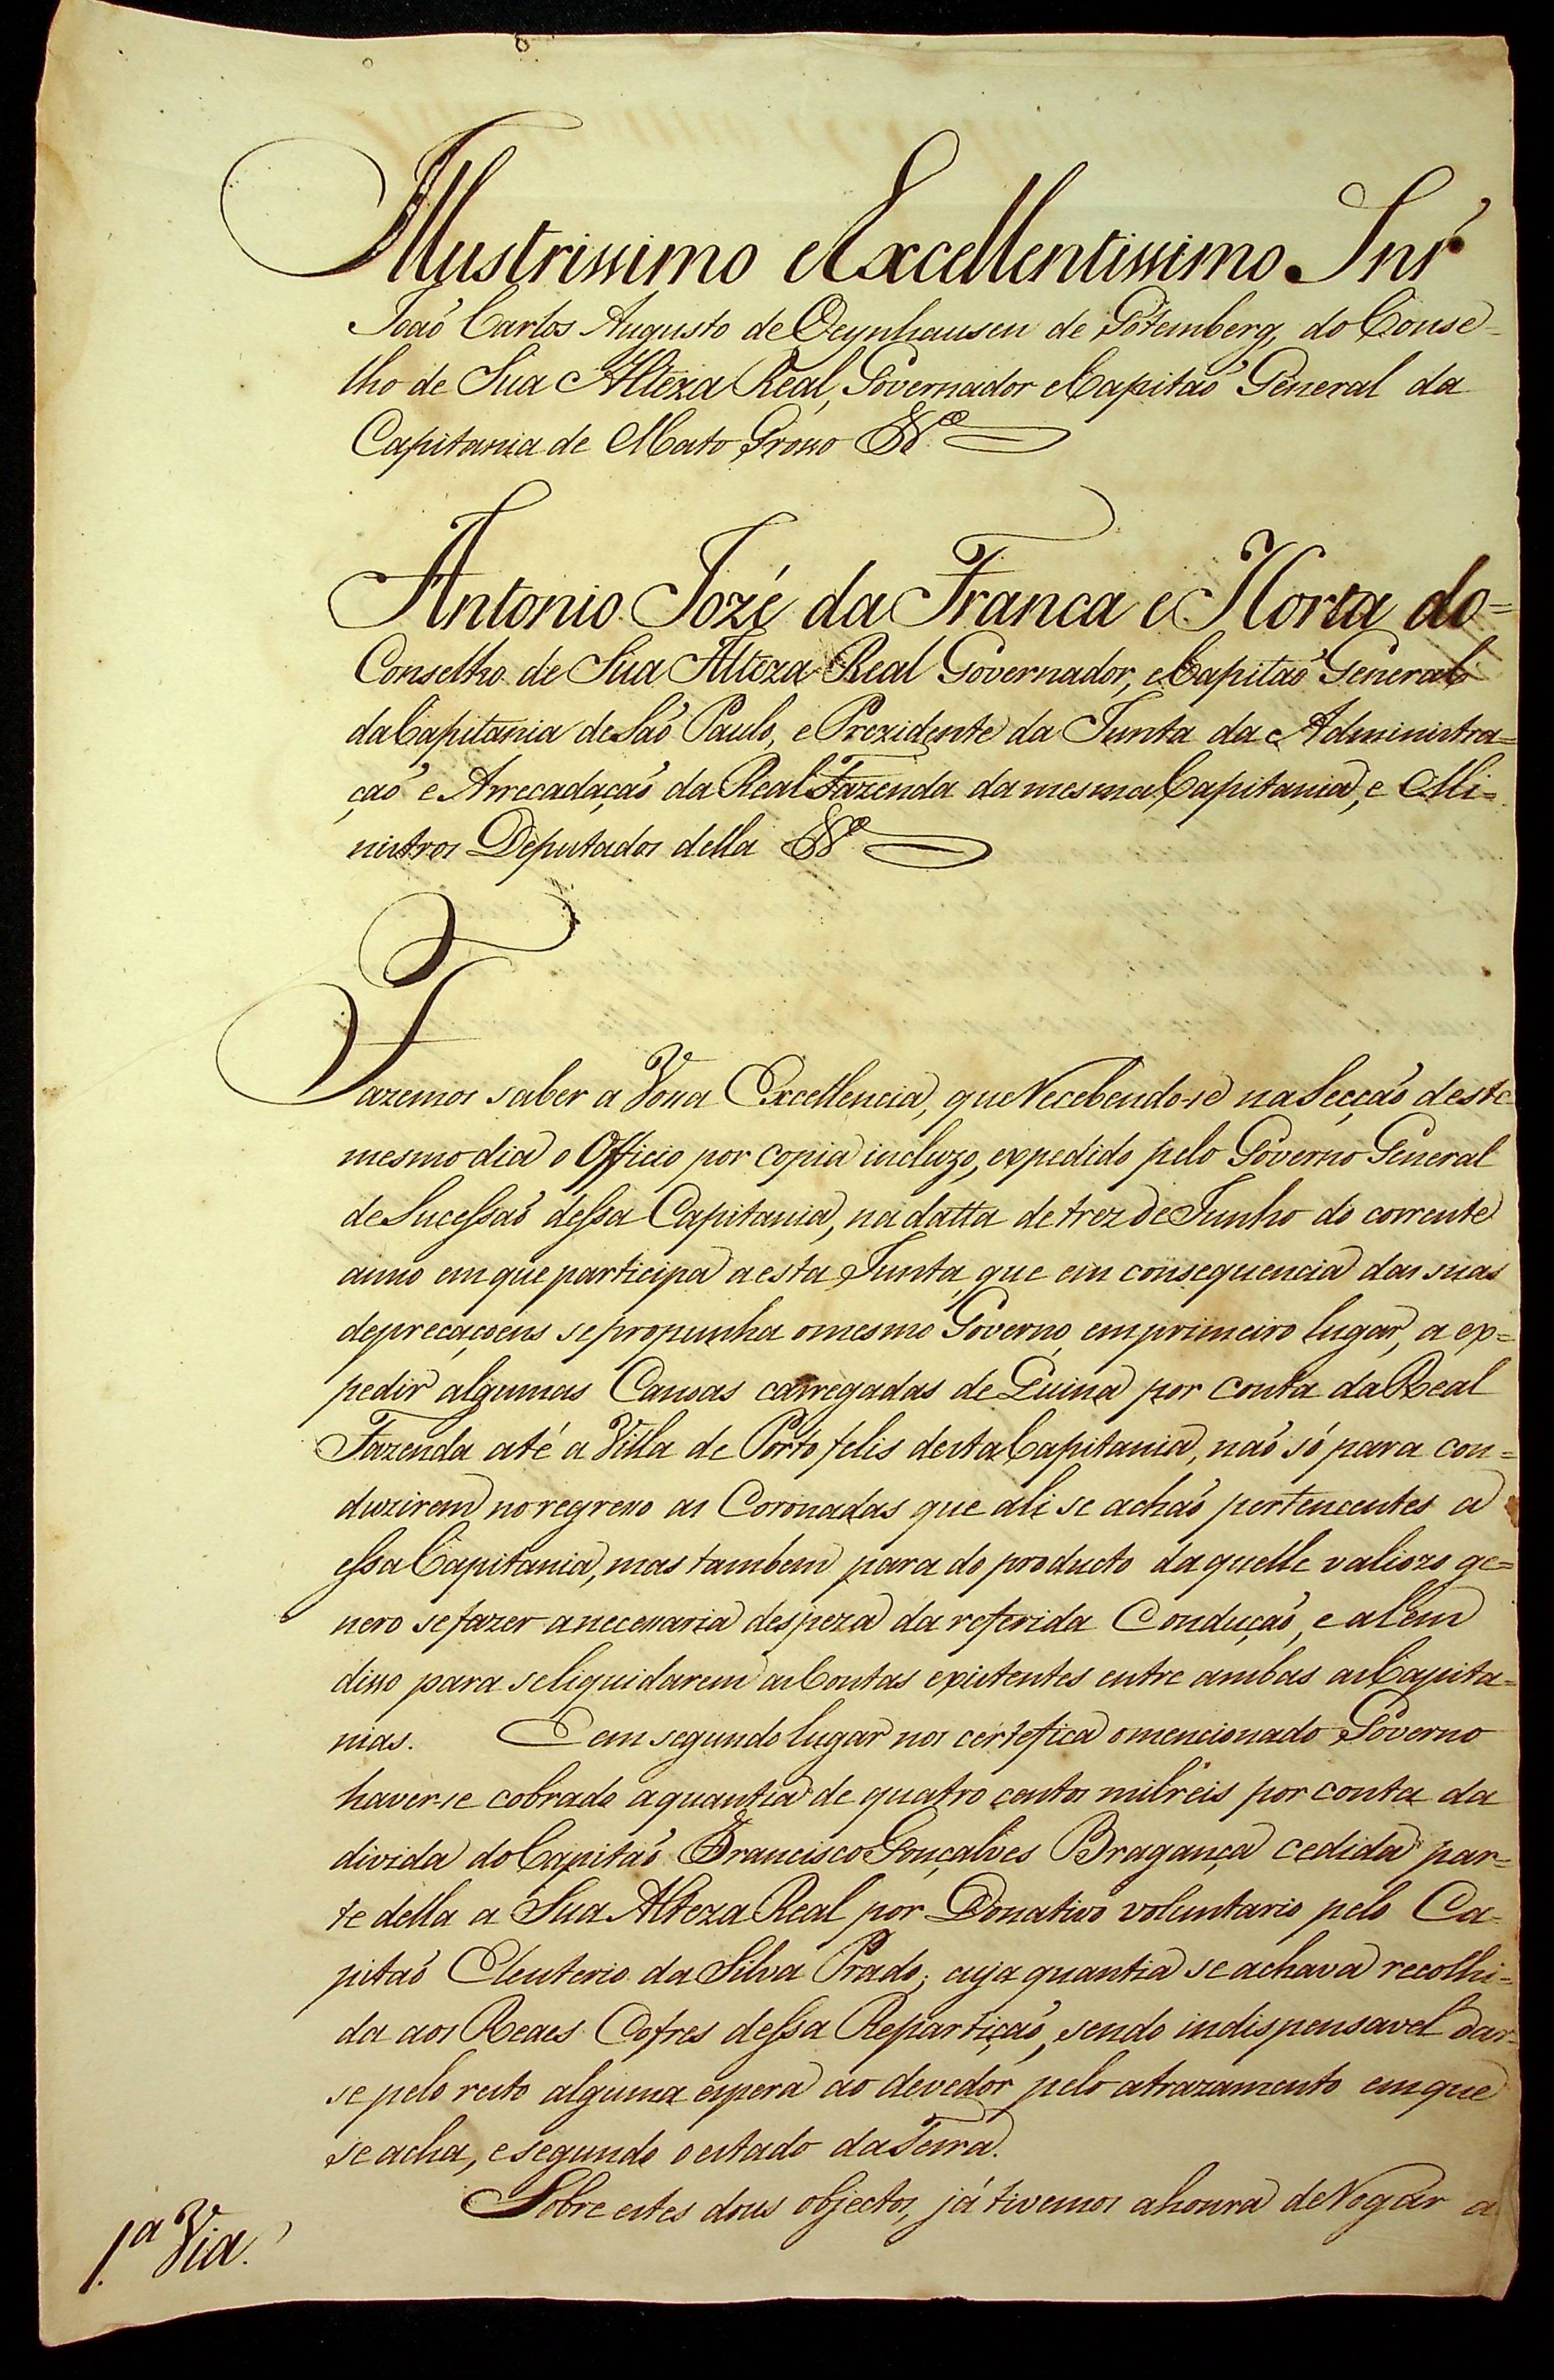 Illustrissimo e Excellentissimo Snr'
Joaõ Carlos Augusto de Oeynhausen de Gòtemberg, do Conse=
lho de Sua Alteza Real, Governador e Capitaõ General da
Capitania de Mato Grosso &ª
Antonio Jozé da Franca e Horta do=
Conselho de Sua Alteza Real Governador, e Capitaõ General
da Capitania de Saõ Paulo, e Prezidente da Junta da Administra=
çaõ e Arrecadaçaõ da Real Fazenda da mesma Capitania, e Mi=
nistros Deputados della &ª
Fazemos saber a Vossa Excellencia, que Recebendo-se na Secçaõ deste
mesmo dia o Officio por copia incluzo, expedido pelo Governo General
de Sucessaõ dessa Capitania, na datta de trez de Junho do corrente
anno em que participa a esta Junta, que em consequencia das suas
deprecaçoens se propunha o mesmo Governo, em primeiro lugar, a ex=
pedir algumas Canoas carregadas de Quina por conta da Real
Fazenda até a Villa de Porto felis desta Capitania, naõ só para con=
duzirem no regresso as Coronadas que ali se achaõ pertencentes a
essa Capitania, mas tambem para do producto daquelle valiozo ge=
nero se fazer a necessaria despeza da referida Conduçaõ, e alem
disso para se liquidarem as Contas existentes entre ambas as Capita=
nias. E em segundo lugar nos certefica o mencionado Governo
haver-se cobrado a quantia de quatro centos mil reis por conta da
divida do Capitaõ Francisco Gonçalves Bragança cedida par=
te della a Sua Alteza Real por Donativo voluntario pelo Ca=
pitaõ Eleuterio da Silva Prado; cuja quantia se achava recolhi=
da aos Reaes Cofres dessa Repartiçaõ, sendo indispensavel dar=
se pelo resto alguma espera ao devedor pelo atrazamento em que
se acha, e segundo o estado da Terra.
Sobre estes dous objectos, já tivemos a honra de Rogar a
1.ª Via.